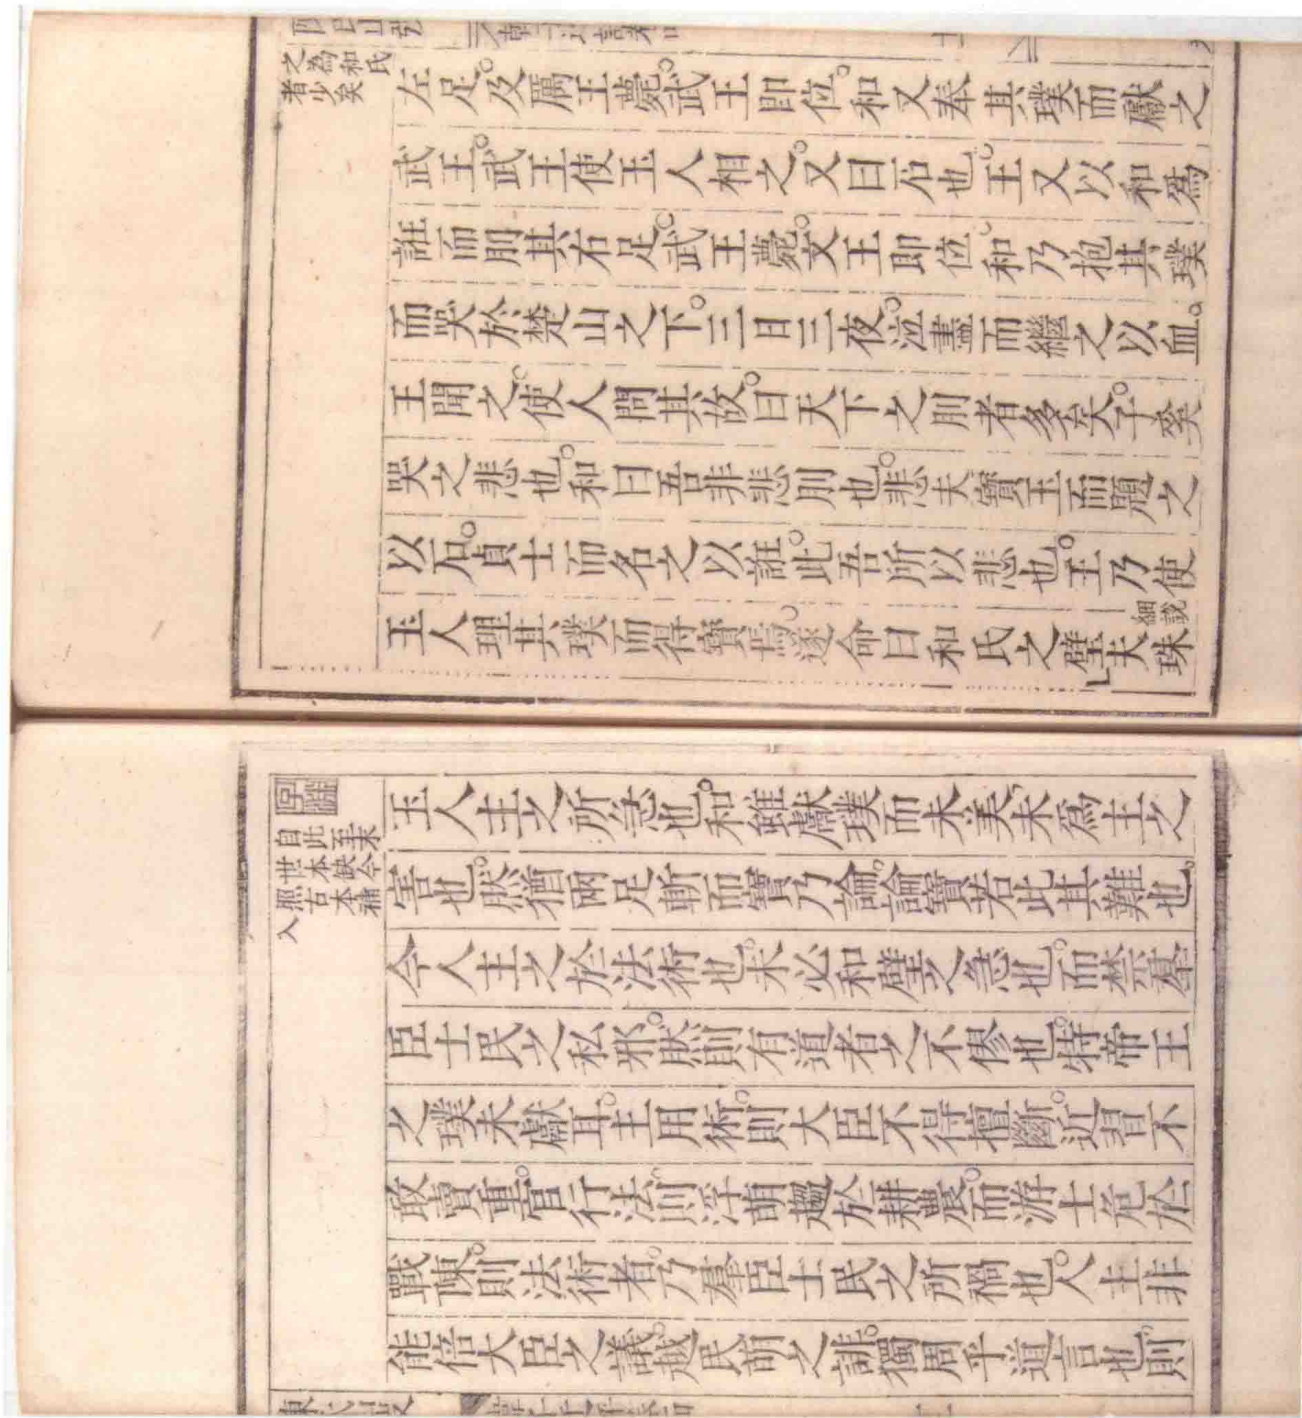 之為和氏
者少矣
左足。及厲王薨。武王即位。和又奉其璞而獻之
武王。武王使玉人相之。又曰石也。王又以和爲
誑而刖其右足。武王薨。文王即位。和乃抱其璞
而哭於楚山之下。三日三夜。泣盡而繼之以血。
王聞之。使人問其故。曰天下之刖者多矣。子奚
哭之悲也。和曰吾非悲刖也。悲夫寶玉而題之
以石。貞士而名之以誑。此吾所以悲也。王乃使
玉人理其璞而得寶焉。遂命曰和氏之璧。夫珠
細說
自此至末
世本缺今
照古本補
入
玉人主之所急也。和雖獻璞而未美。未爲主之
害也。然猶兩足斬而寶乃論。論寶若此其難也。
今人主之於法術也。未必和璧之急也。而禁羣
臣士民之私邪。然則有道者之不僇也。特帝王
之璞未獻耳。主用術。則大臣不得擅斷。近習不
敢賣重。官行法。則浮萌趨於耕農。而游士危於
戰陳。則法術者。乃羣臣士民之所禍也。人主非
能倍大臣之議。越民萌之誹。獨周乎道言也。則